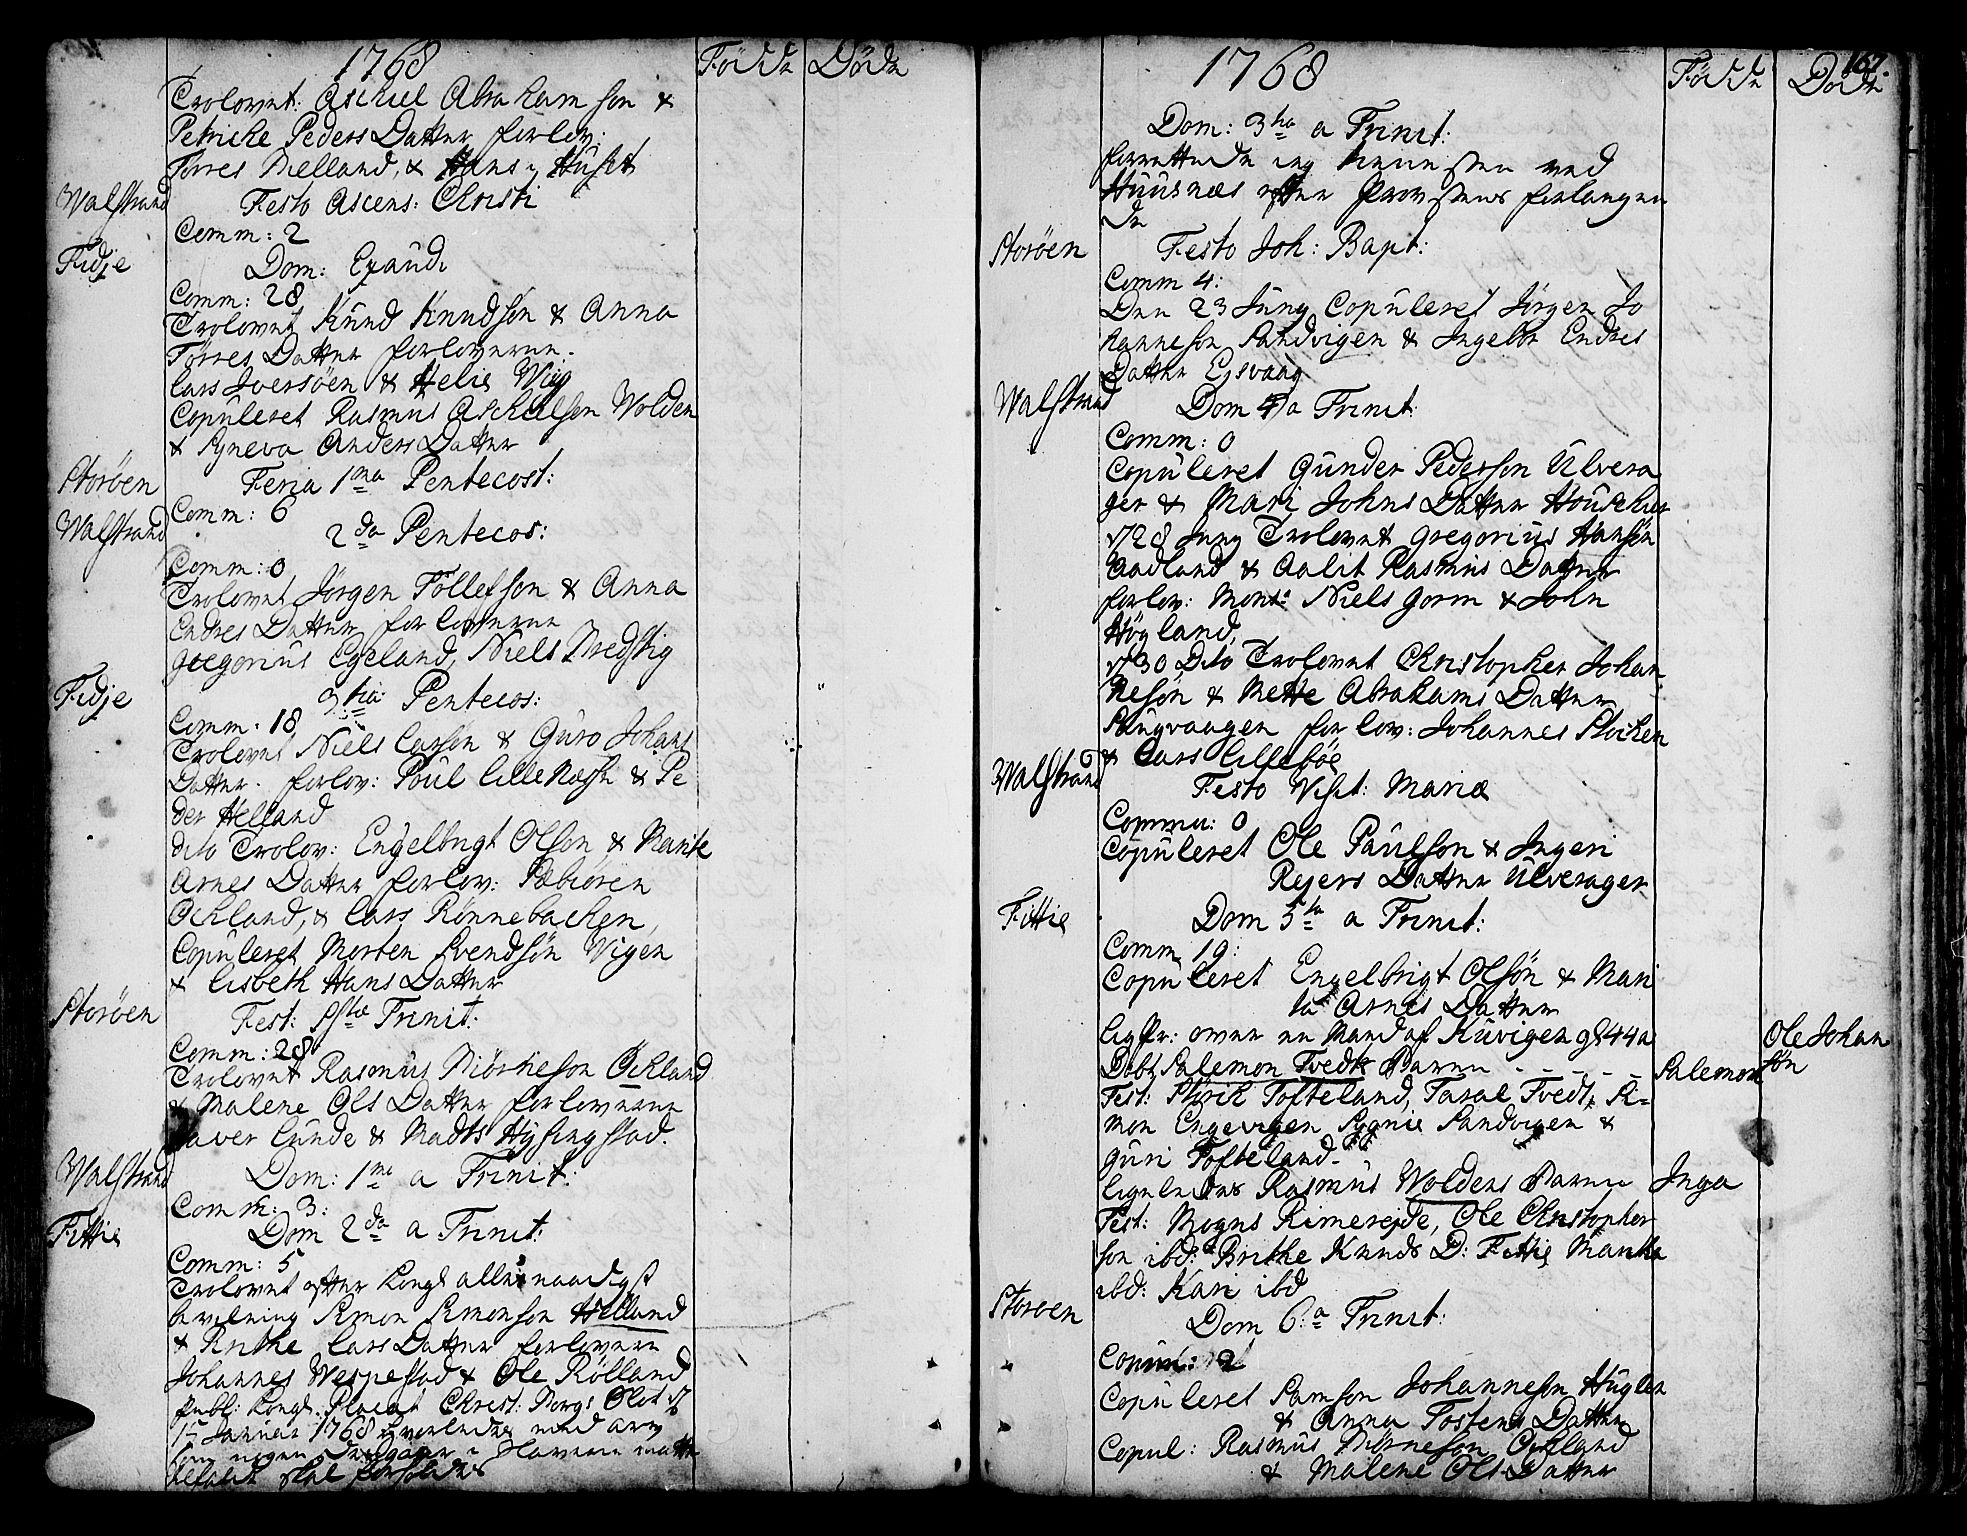 1768 Födde Döde
Trolovet: Aschiel Abraham son &
Petriche Peders Datter forlov:
Torres Melland, & Hans Huset
Walstrand Festo Ascens: Christi
Comm: 2
Fidje Dom: Exaudi
Comm: 28
Trolovet Knud Knudsøn & Anna
Torres Datter forloverne.
Lars Iversöen & Helie Wiig
Copuleret Rasmus Aschielson Wolden
& Sygneva Anders Datter
Storöen Feria 1ma Pentecost:
Comm: 6
Walstrand 2da Pentecos:
Comm: 0
Trolovet Jörgen Tollefson & Anna
Endres Datter forloverne
Gregorius Egeland, Niels Tredstig
Fidje 3tia Pentecos:
Comm. 18
Trolovet Niels Larsön & Guro Johans
Datter. forlov: Poul Lille &  Pe
der Helland
dito Trolov: Engelbrigt Olson, & Marite
Arnes Datter forlov: Sebiören
Ochland, & Lars Rönnebachen,
Copuleret Morten Svendsön Vigen
& Lisbeth Hans Datter
Storöen Fest: Sstæ Trinit:
Comm: 28
Trolovet Rasmus Biörneson Öchland
& Malene Ols Datter forloverne
Haver Lunde & Madts Hysingstad.
Walstrand Dom: 1ma a Trinit:
Comm: 3:
Fittie Dom 2da a Trinit:
Comm: 5
Trolovet efter Kongl allernaadigst
bevilning Simon Simonson Helland
& Brithe Lars Datter forlovere
Johannes Wespestad & Ole Rölland
publ: Kongl. Placat Christ: Borgs Slot d
1ste Januar 1768 med
skal forholdes
1768 Födde Döde
167.
Dom: 3tia a Trinit:
forrettede ieg tienesten ved
Huusnæs efter Provstens forlangen
de
Storöen Festo Joh: Bapt:
Comm 4:
Den 23 Juny Copuleret Jörgen Jo
hanneson Sandvigen & Ingebr Endres
Datter Ejsvaag
Walstrand Dom 4ta a Trinit:
Comm: 0
Copuleret Gunder Pederson Ulvera
ger & Mari Johns Datter
d 28 Juny Trolovet Gregorius Hansön
Aadland & Aalit Rasmus Datter
forlov: Mons: Niels Gorm & John
Högland,
d 30 Dito Trolovet Christopher Johan
nesön & Mette Abrahams Datter
forlov: Johannes Stochen
& Lars Lillebøe
Walstrand Festo Visit: Mariæ
Commu: 0
Copuleret Ole Paulson & Ingeri
Rejers Datter Ulverager
Fittie Dom 5ta a Trinit:
Comm 19:
Copuleret Engelbrigt Olsön & Mari
ta Arnes Datter
Ligpr: over en Mand af Kuvigen gl 44 a Ole Johan
sön
Döbt Salemon Tvedte Barn - - - - - Salemon
Test: Sjurik Tofteland, Taral Tvedt, Si=
mon Engevigen Sygnie Sandvigen &
Guri Tofteland.
Ligeledes Rasmus Woldens Barn Inga
Test: Mogns Rimerejde, Ole Christopher
son ibd: Brithe Knuds D: Fittie Maritha
ibd: Kari ibd
Storöen Dom 6:ta Trinit:
Comm: 2
Copuleret Samson Johanneson Huglen
& Anna Tostens Datter
Copul: Rasmus Biörneson Öchland
& Malene Ols Datter